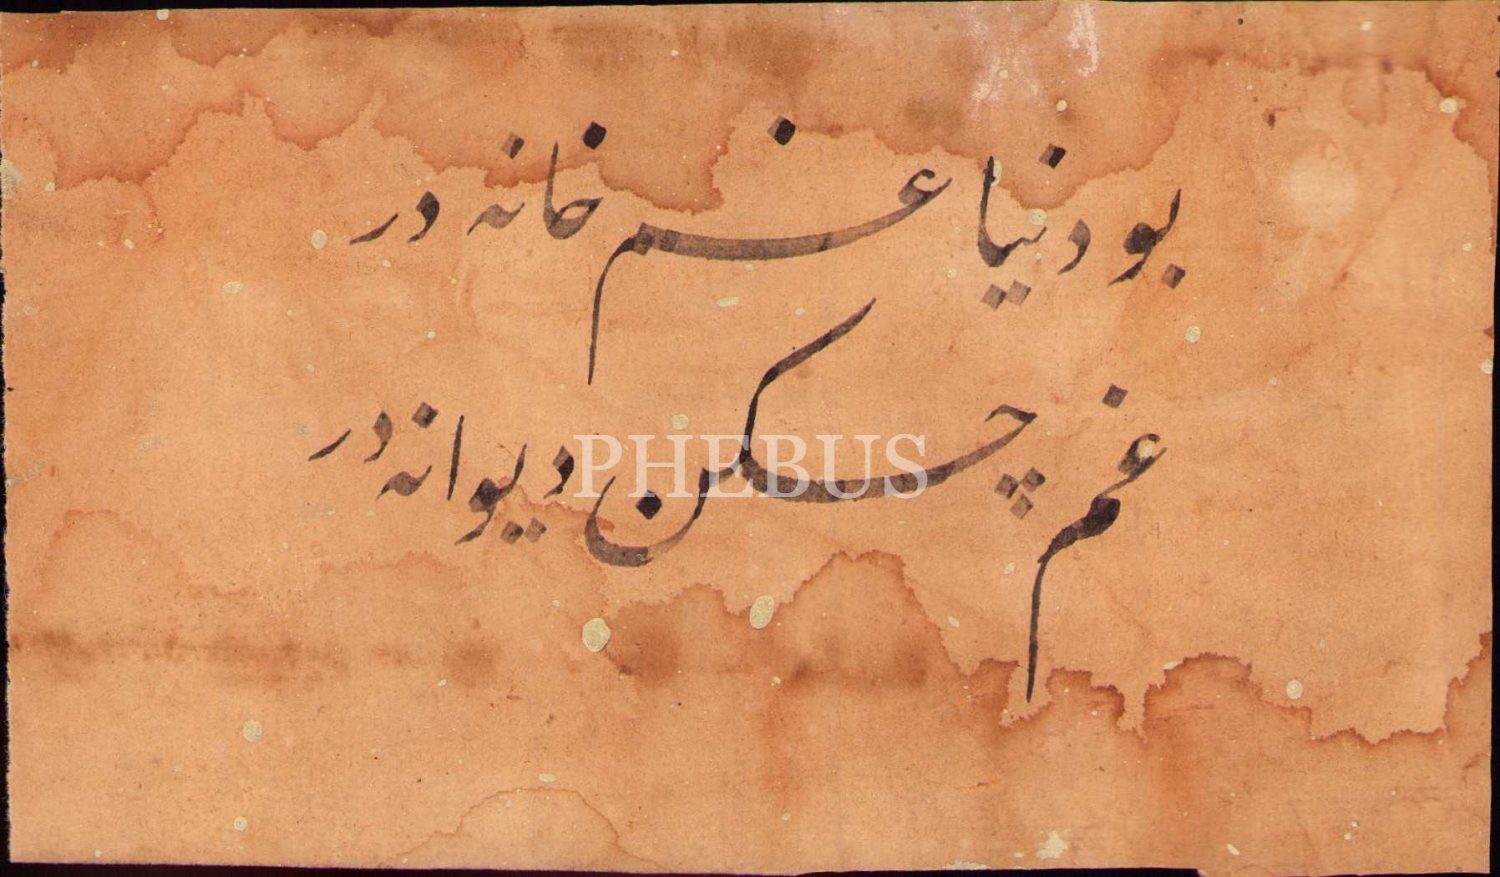 بو دنیا غم خانه در
غم چكن دیوانه در
PHEBUS